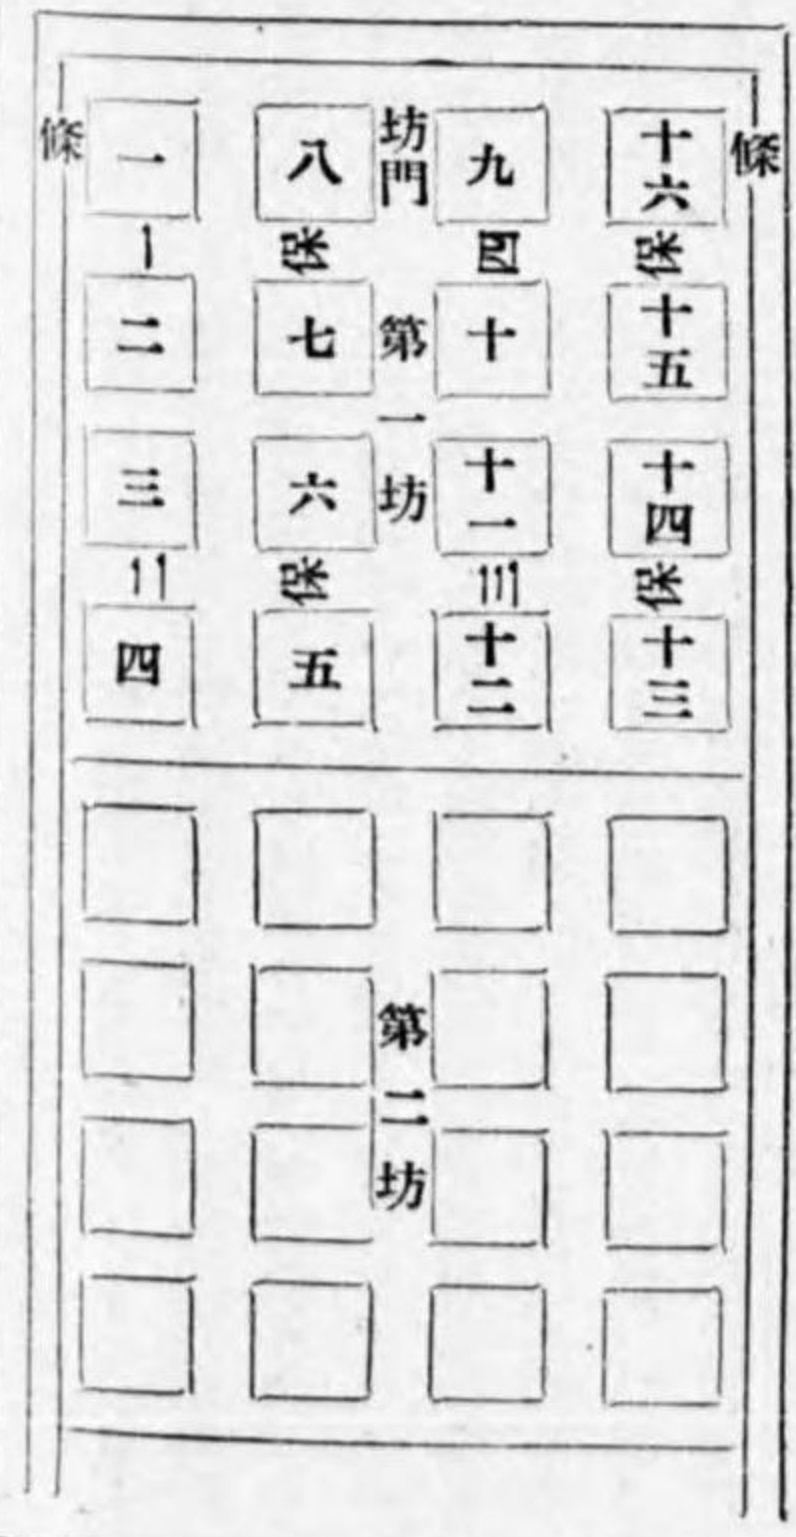 條 一 八 坊門 九 十六 條
一保 四保
二 七 十 十五
第一坊
三 六 十一 十四
二保 三保
四 五 十二 十三
第二坊